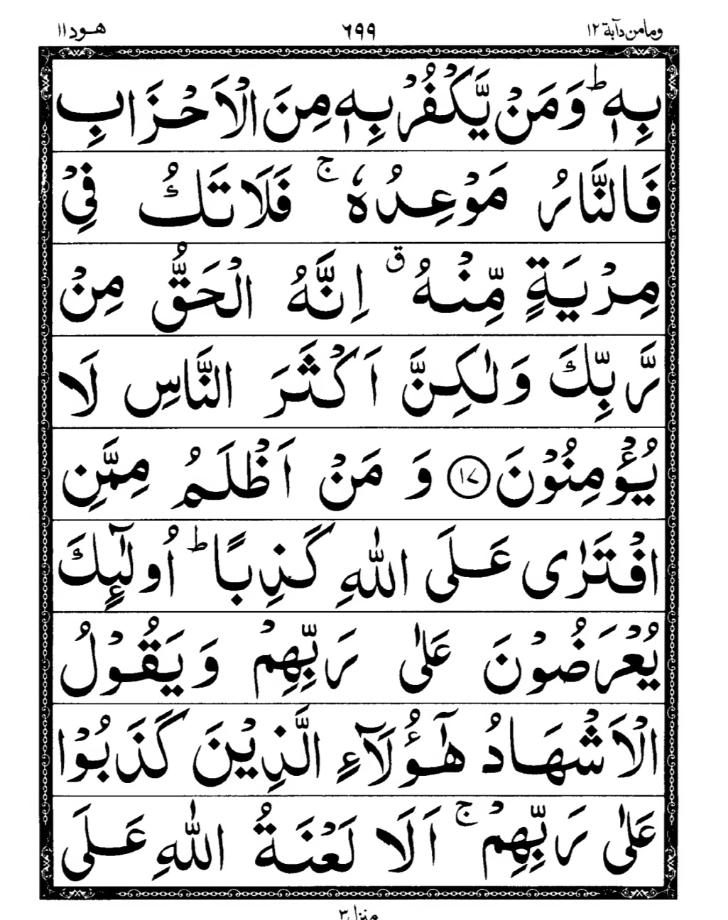 ومامن دآبة ١٢ ٦٩٩ هود ١١
بِهٖ ؕ وَمَنْ يَّكْفُرْ بِهٖ مِنَ الْاَحْزَابِ
فَالنَّارُ مَوْعِدُهٗ ۚ فَلَا تَكُ فِيْ
مِرْيَةٍ مِّنْهُ ۗ اِنَّهُ الْحَقُّ مِنْ
رَّبِّكَ وَلٰكِنَّ اَكْثَرَ النَّاسِ لَا
يُؤْمِنُوْنَ ﴿١٧﴾ وَ مَنْ اَظْلَمُ مِمَّنِ
افْتَرٰى عَلَى اللّٰهِ كَذِبًا ؕ اُولٰٓئِكَ
يُعْرَضُوْنَ عَلٰى رَبِّهِمْ وَيَقُوْلُ
الْاَشْهَادُ هٰٓؤُلَآءِ الَّذِيْنَ كَذَبُوْا
عَلٰى رَبِّهِمْ ۚ اَلَا لَعْنَةُ اللّٰهِ عَلَى
منزل ٣